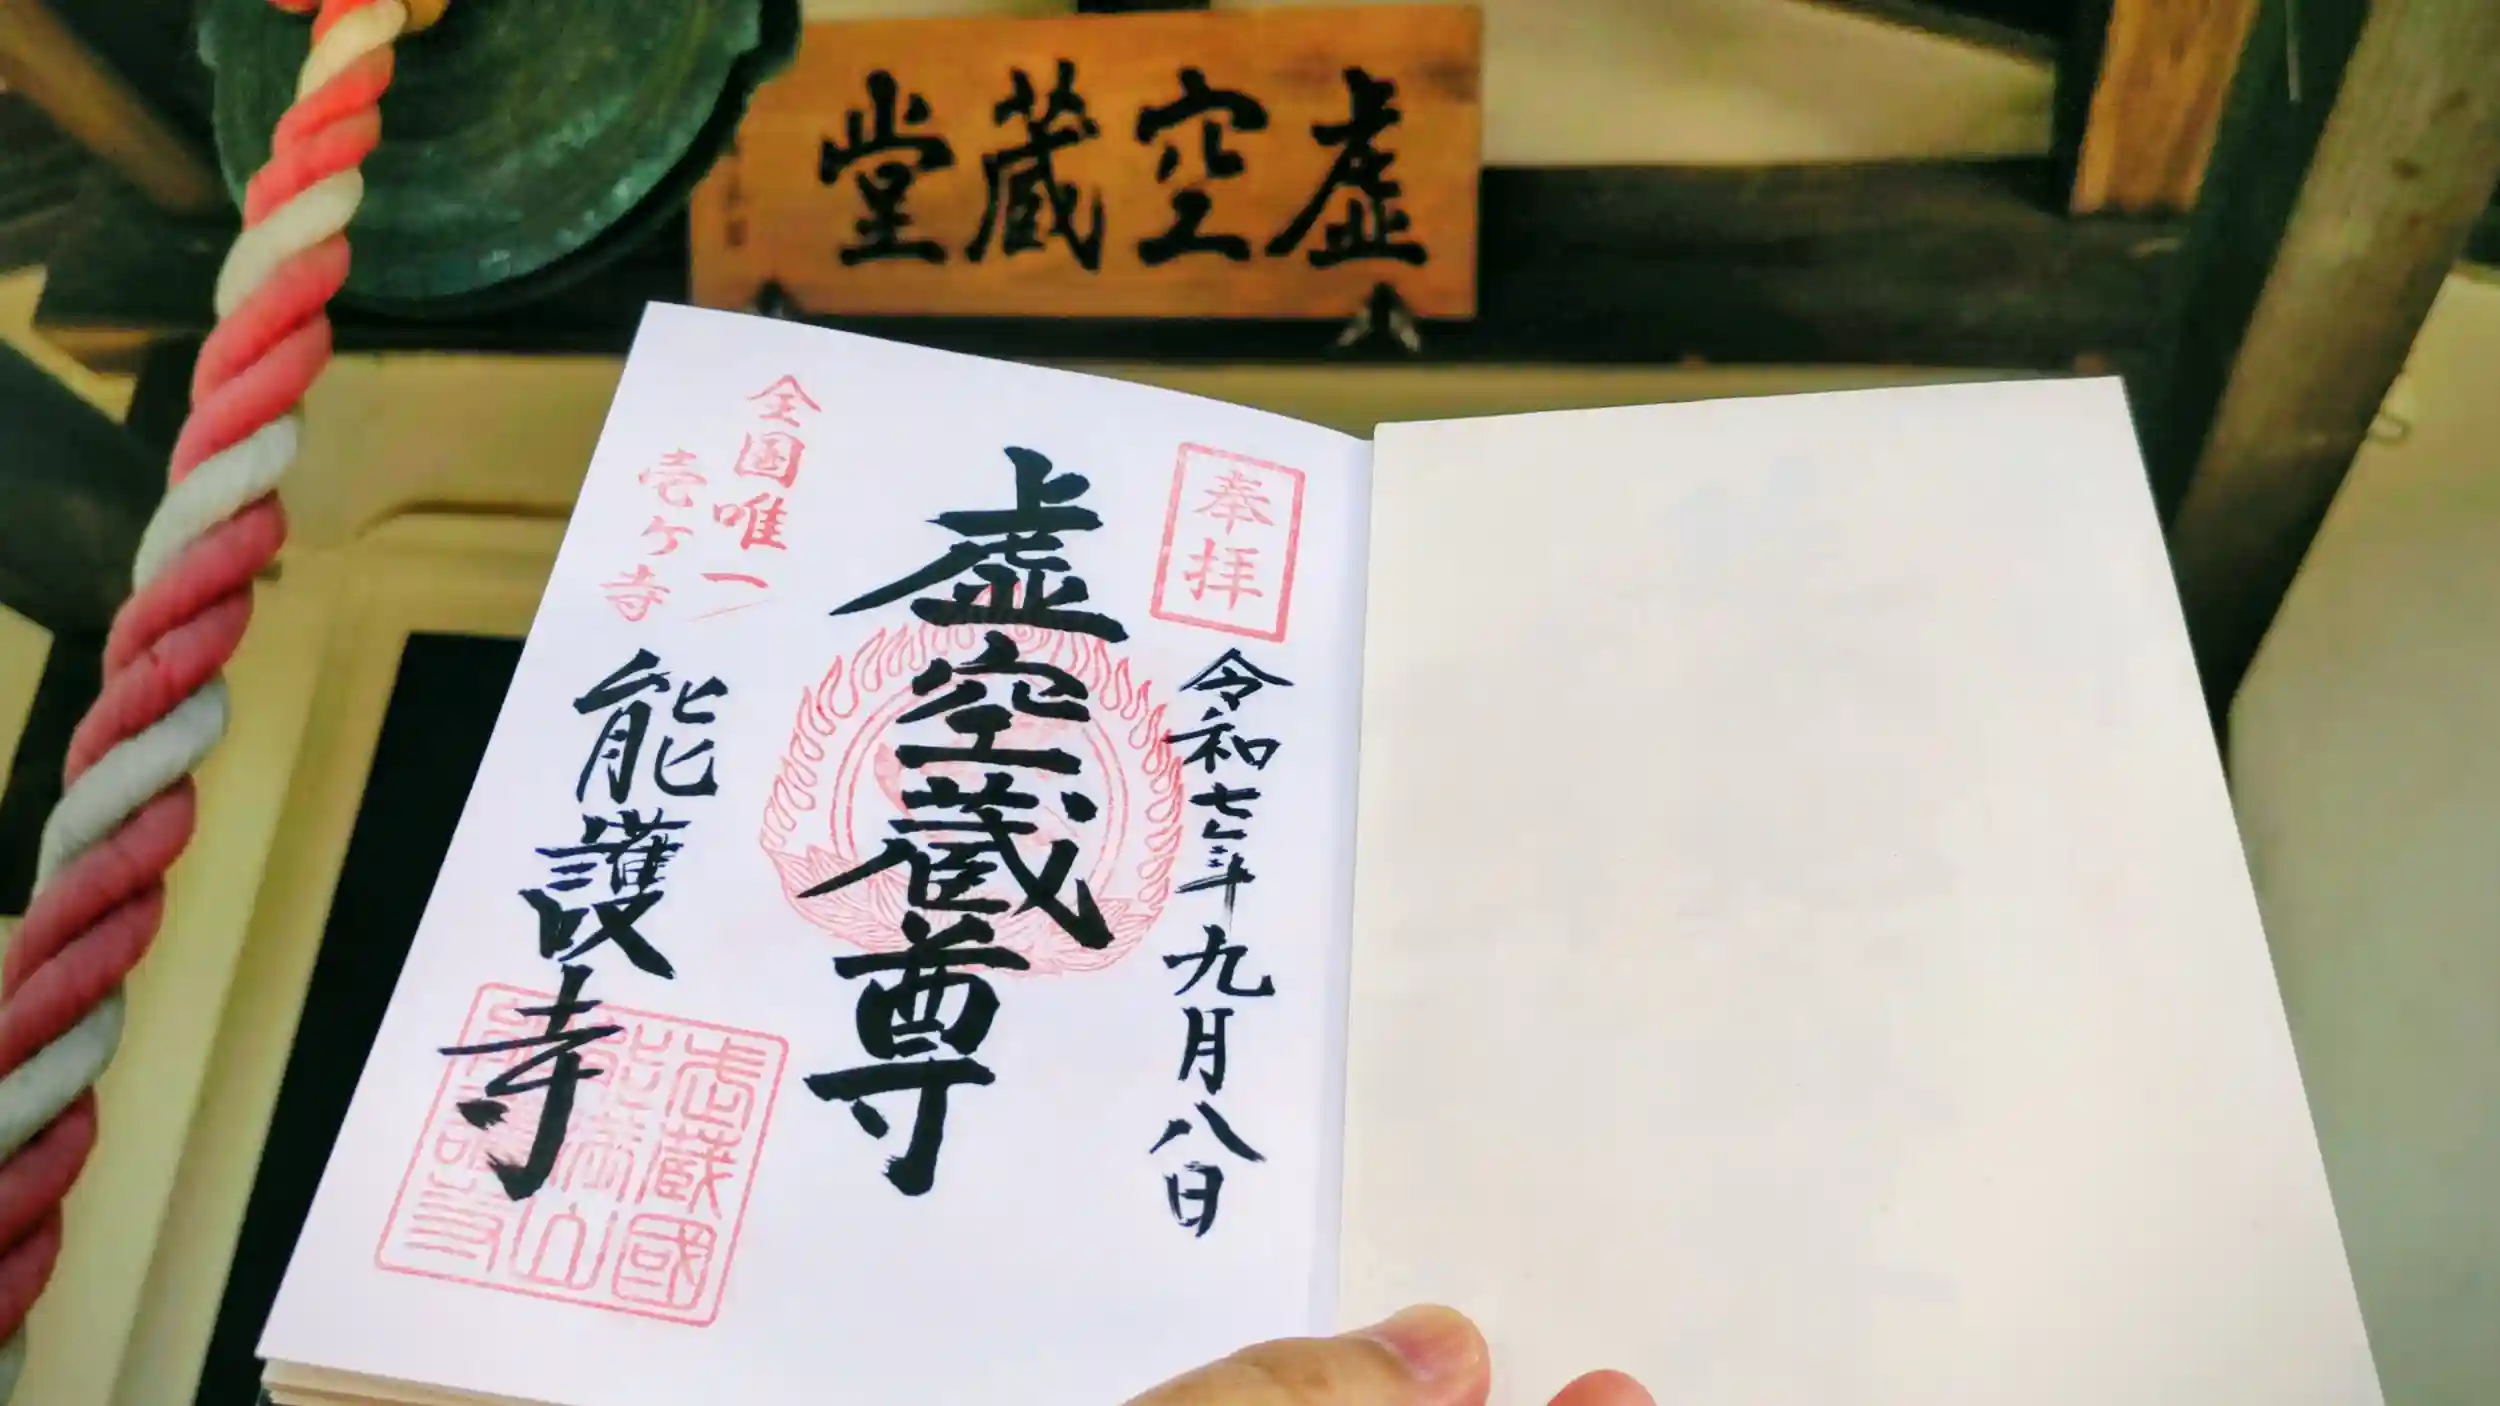 虚空蔵堂
奉拝
令和七年九月八日
虚空蔵尊
全国唯一
壱ケ寺
能護寺
武蔵國
能満山
能護寺